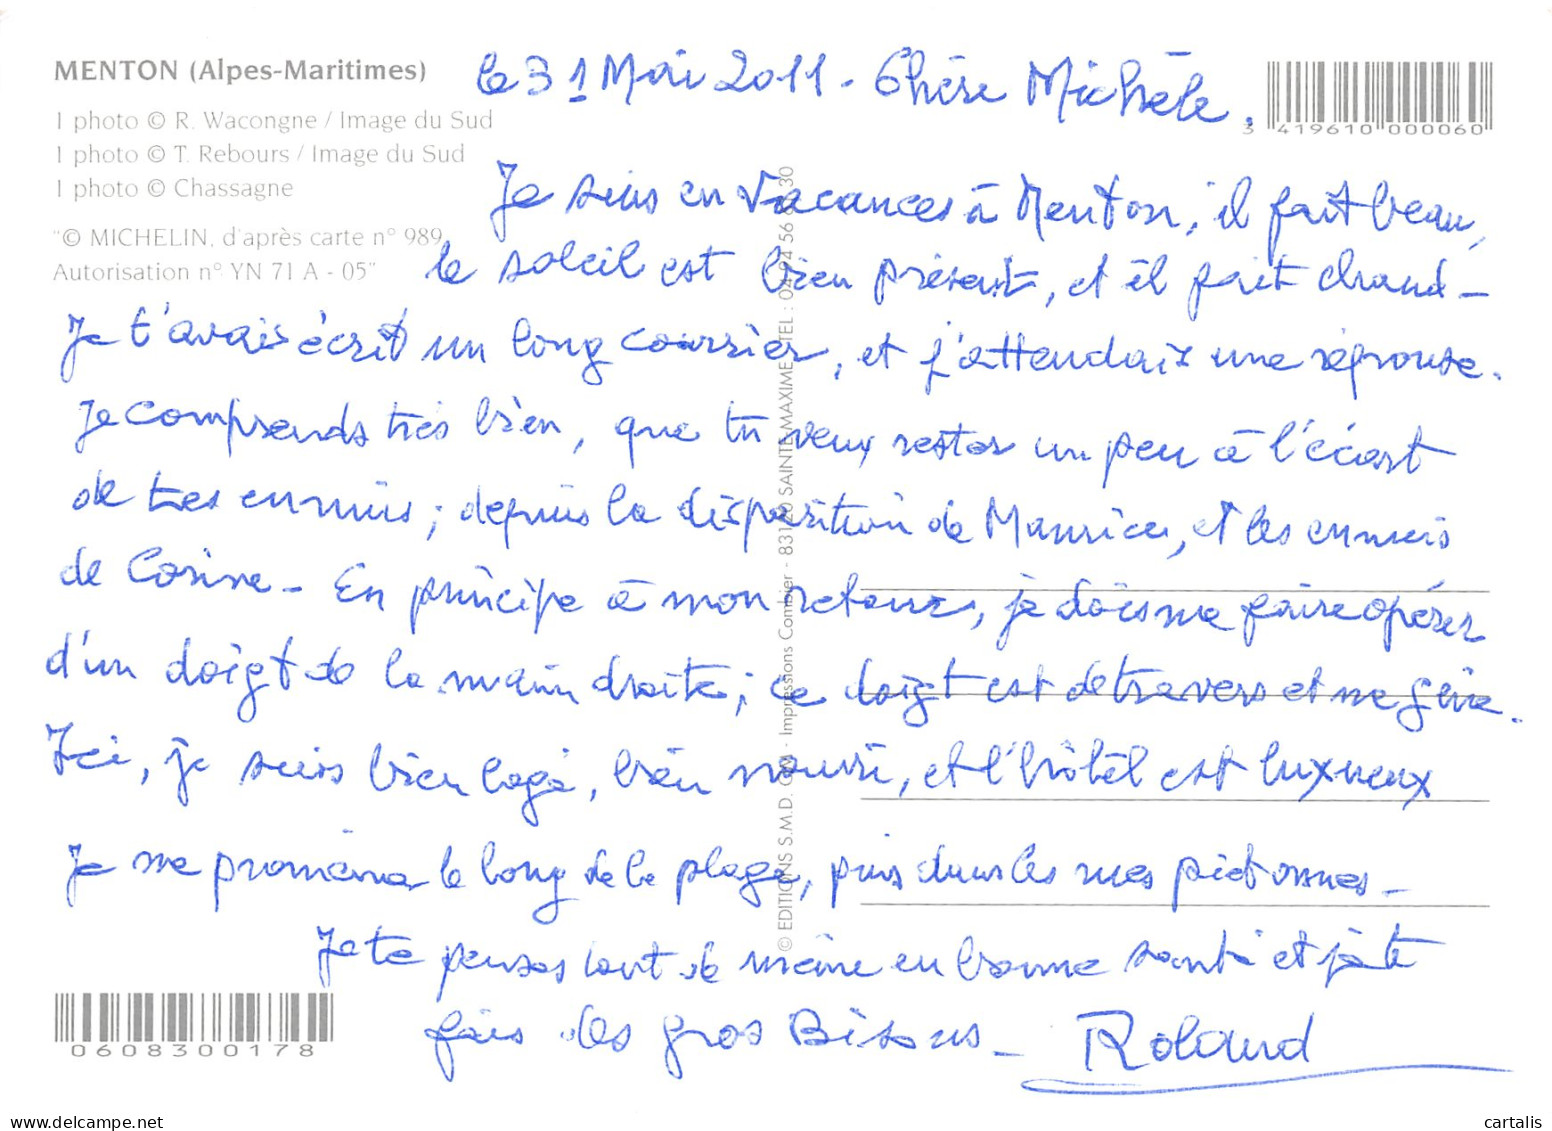 MENTON (Alpes-Maritimes)
1 photo © R. Wacongne / Image du Sud
1 photo © T. Rebours / Image du Sud
1 photo © Chassagne
"© MICHELIN, d'après carte n° 989
Autorisation n° YN 71 A - 05"
3 419610 000060
le 31 Mai 2011 - Chère Michèle,
Je suis en vacances à Menton, il fait beau,
le soleil est bien présent, et il fait chaud -
Je t'avais écrit un long courrier, et j'attendais une réponse.
Je comprends très bien, que tu veux rester un peu à l'écart
de tes ennuis ; depuis la disparition de Maurice, et les ennuis
de Corine - En principe à mon retour, je dois me faire opérer
d'un doigt de la main droite ; ce doigt est de travers et me gêne.
Ici, je suis bien logé, bien nourri, et l'hôtel est luxueux
Je me promène le long de la plage, puis dans les rues piétonnes -
Je te penses tout de même en bonne santé et je te
fais des gros Bisous - Roland
0608300178
© EDITIONS S.M.D. - Impressions Combier - 83120 SAINTE-MAXIME - TEL : 04 94 56 30
cartalis